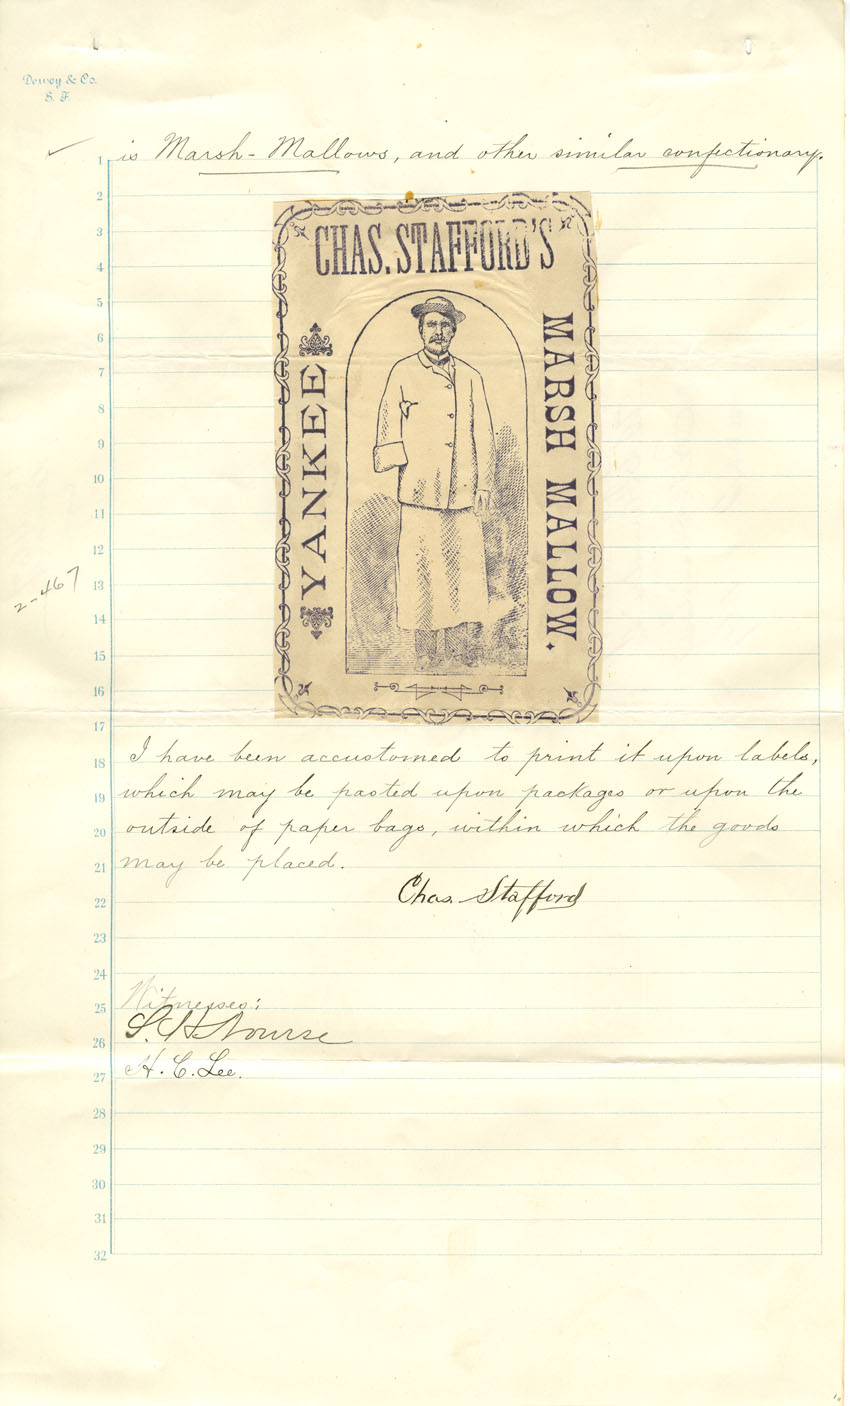 Dewey & Co.
S. F.
1 is Marsh-Mallows, and other similar confectionary.
2
3
4
5
6
7
8
9
10
11
12
13
14
15
16
17
CHAS. STAFFORD'S
YANKEE
MARSH MALLOW.
2-467
18 I have been accustomed to print it upon labels,
19 which may be pasted upon packages or upon the
20 outside of paper bags, within which the goods
21 may be placed.
22 Chas. Stafford
23
24
25 Witnesses:
26 S. H. Nourse
27 H. C. Lee.
28
29
30
31
32